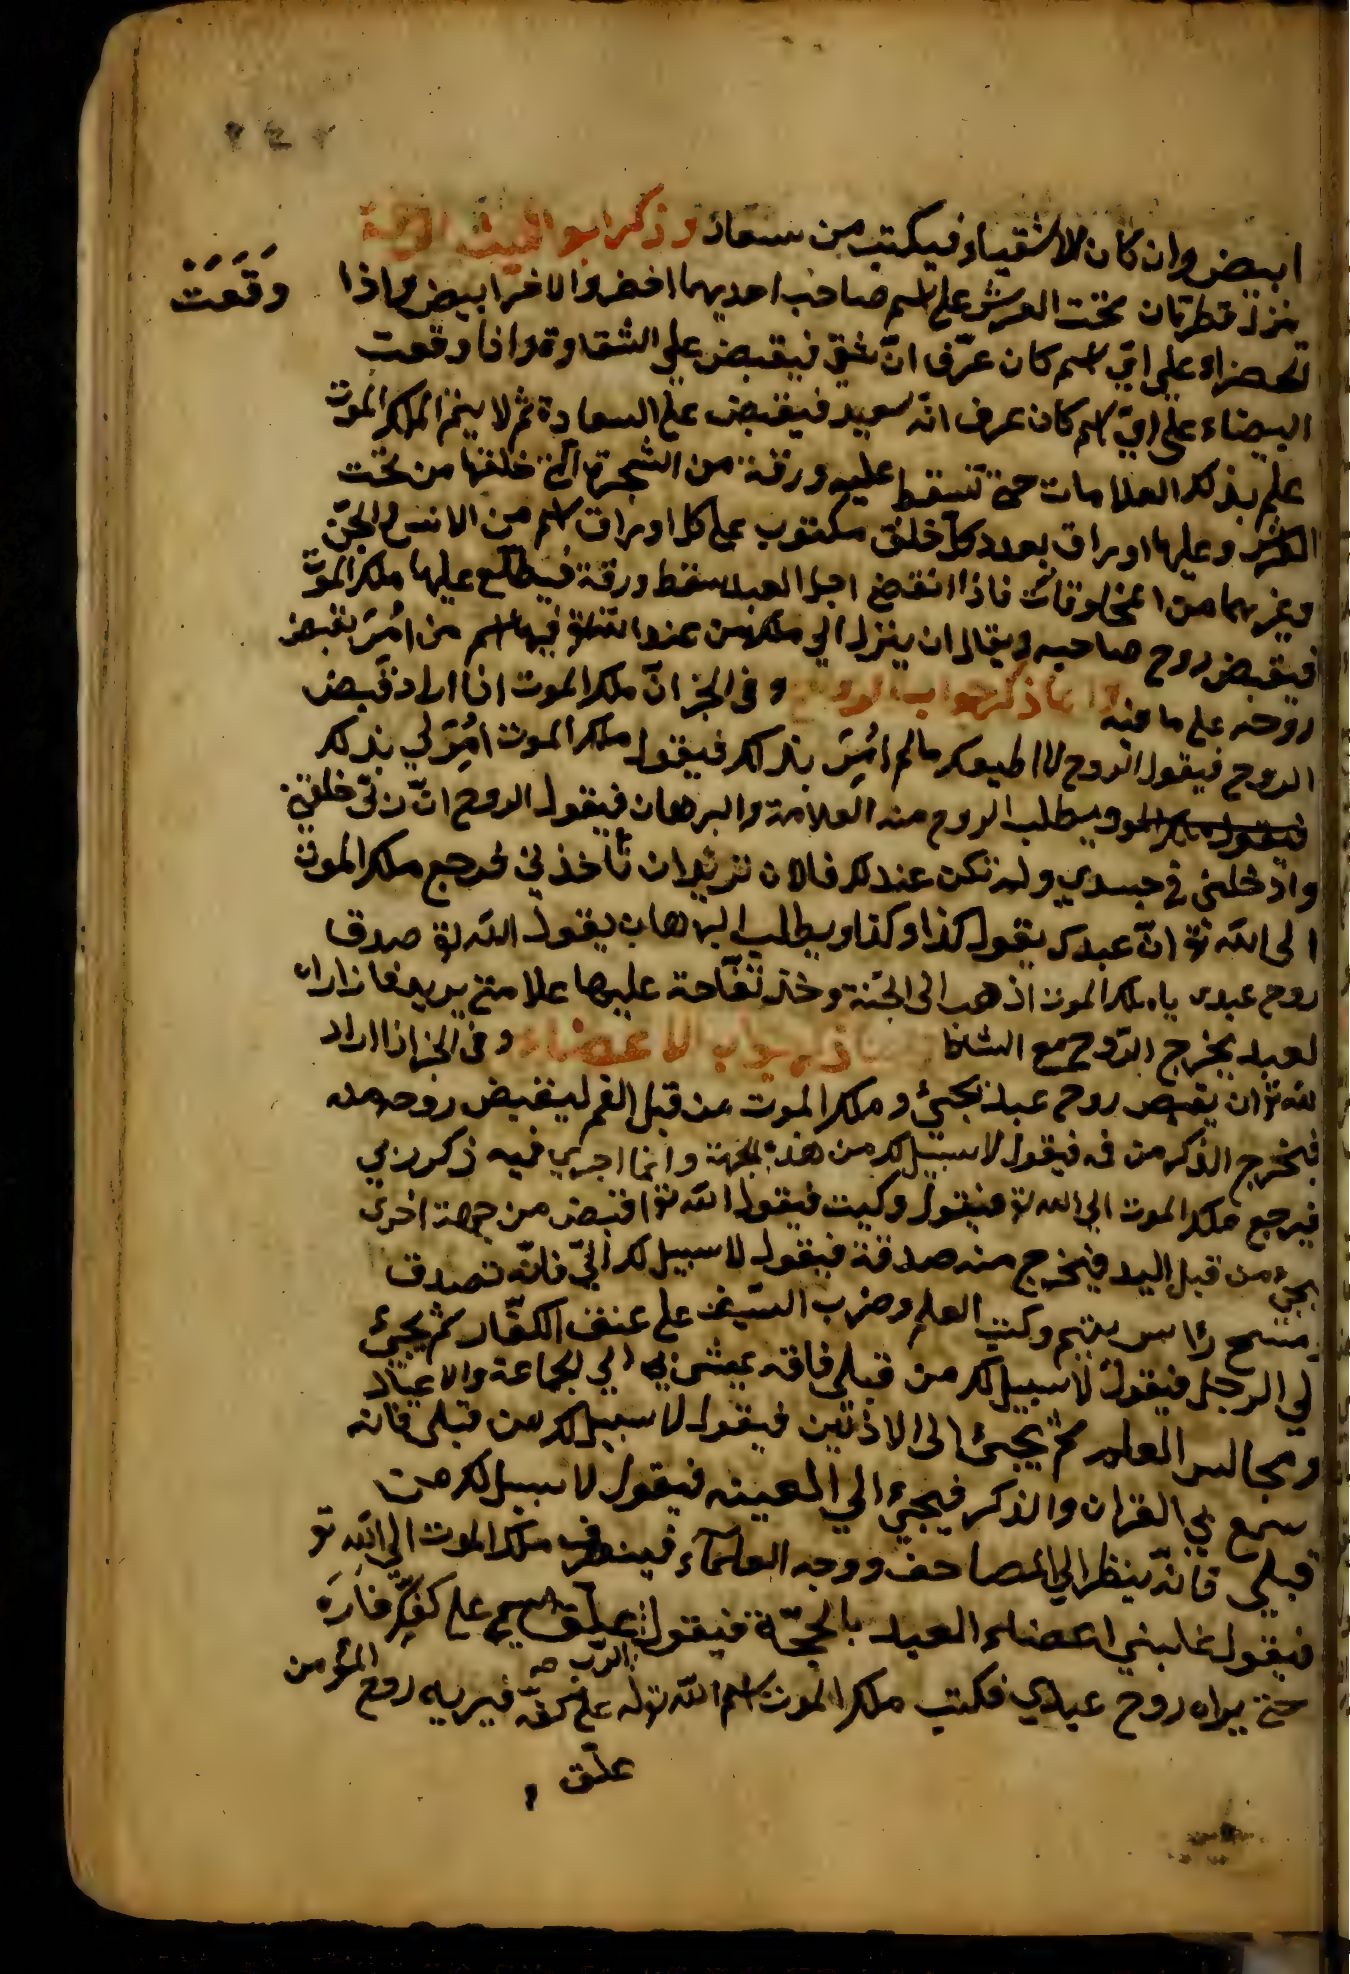 ابيض وان كان للاشقياء فيكتب من سعاد وذكر ابو الليث
ينزل قطرتان تحت العرش على اسم صاحب احديهما اخضر والاخر ابيض واذا
وقعت
لخضراء على اي اسم كان عرف ان شقي فيقبض على الشقاوة واذا وقعت
البيضاء على اي اسم كان عرف انه سعيد فيقبض على السعادة ثم لا الملك الموت
علم بذلك العلامات حتى تسقط عليه ورقة من الشجرة التي خلقها من تحت
العرش وعليها اوراق بعدد كل خلق مكتوب على كل اوراق اسم من الانس والجن
وغيرهما من المخلوقات فاذا انقض اجل العبد سقط ورقة فيطلع عليها ملك الموت
فيقبض روح صاحبه ويقال ان ينزل الي ملك من عند الله تع فيها اسم من امر بقبض
روحه على ما فيه واما ذكر جواب الروح وفي الخبر ان ملك الموت اذا اراد قبض
الروح فيقول الروح لا اطيعك مالم امر بذلك فيقول ملك الموت امرني بذلك
ويطلب الروح منه العلامة والبرهان فيقول الروح ان ربي خلقني
وادخلني في جسدي ولم تكن عندك فالان تريد ان تأخذني فرجع ملك الموت
الى الله تع ان عبدك يقول كذا وكذا ويطلب البرهان يقول الله تع صدق
روح عبدي يا ملك الموت اذهب الى الجنة وخذ تفاحة عليها علامتي يريد فاذا اراه
لعبد يخرج الروح مع النشاط ذكر جواب الاعضاء وفي الخبر اذا اراد
لله تع ان يقبض روح عبد يجيئ ملك الموت من قبل الفم ليقبض روحه منه
فيخرج الذكر من فه فيقول لا سبيل لك من هذه الجهة وانما اجري فيه ذكر ربي
فيرجع ملك الموت الي الله تع فيقول وكيت فيقول الله تع اقبض من جهة اخرى
يجيء من قبل اليد فيخرج منه صدقة فيقول لا سبيل لك الي فانه تصدق
مسح رأس يتيم وكتب العلم وضرب السيف على عنق الكفار ثم يجيئ
لي الرجل فيقول لا سبيل لك من قبلي فانه يمشي بي الي الجماعة والاعياد
ومجالس العلم ثم يجيئ الى الاذنين فيقول لا سبيل لك من قبلي فانه
سمع بي القران والذكر فيجيء الي العينه فيقول لا سبيل لك من
قبلي فانه ينظر الي المصاحف ووجه العلماء فينصرف ملك الموت الي الله تع
فيقول غلبني اعضاء العبد بالحجة فيقول الرب علق اسمي على كفك فاره
حتى يراه روح عبدي فكتب ملك الموت اسم الله تع له على كفه فيريه روح المؤمن
علق